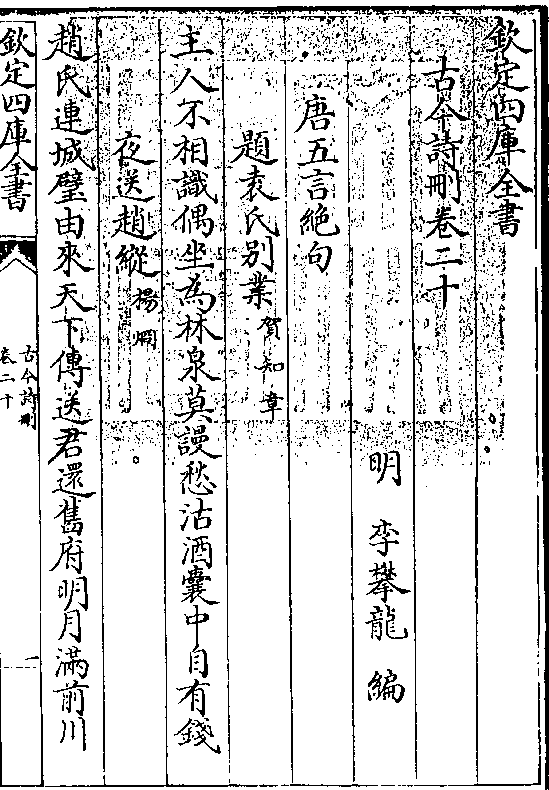 欽定四庫全書
古今詩刪卷二十
明 李攀龍 編
唐五言絶句
題袁氏别業 賀知章
主人不相識偶坐為林泉莫謾愁沽酒囊中自有錢
夜送趙縱 楊烱
趙氏連城璧由來天下傳送君還舊府明月滿前川
欽定四庫全書
古今詩刪
卷二十
一